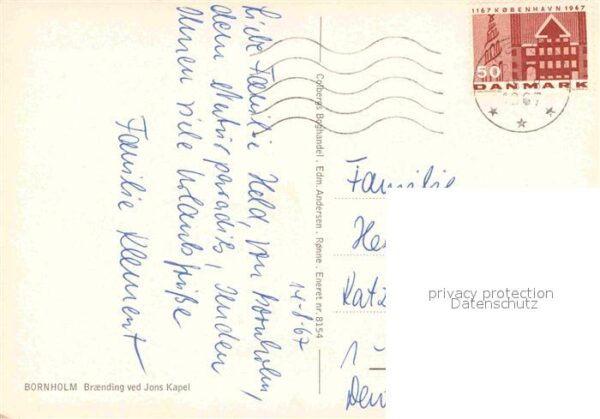 Liebe Familie Held, von Bornholm,
dem Naturparadis, senden
Ihnen viele Urlaubsgrüße
Familie Klement
14-8-67
Colbergs Boghandel . Edm. Andersen . Rønne . Eneret nr. 8154
BORNHOLM Brænding ved Jons Kapel
1167 KØBENHAVN 1967
50
DANMARK
1967
Familie
He
Katz
1
privacy protection
Datenschutz